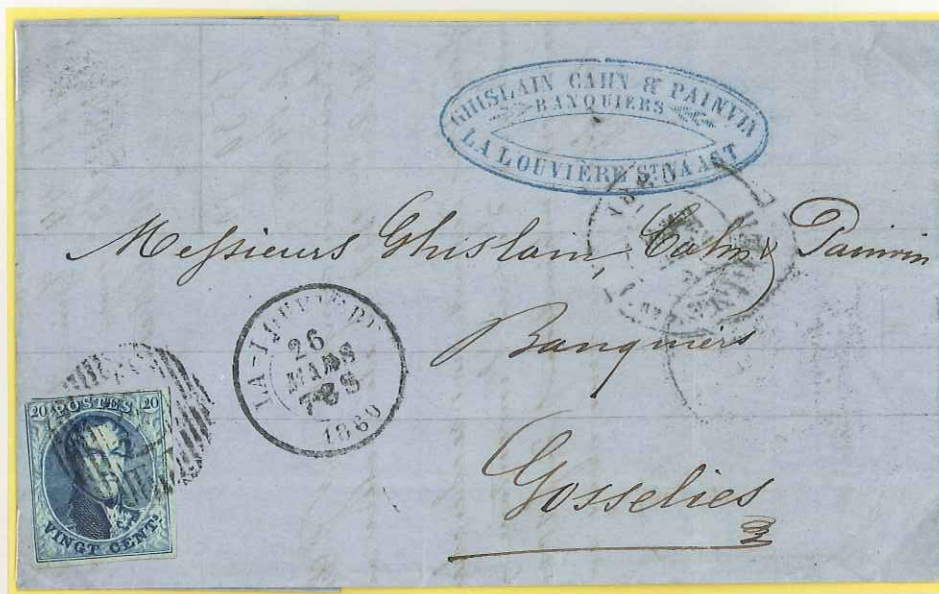 GHISLAIN CAHN & PAINVIN
BANQUIERS
LA LOUVIÈRE ST VAAST
Messieurs Ghislain Cahn & Painvin
Banquiers
Gosselies
LA-LOUVIERE
26
MARS
1860
20 POSTES 20
VINGT CENTS.